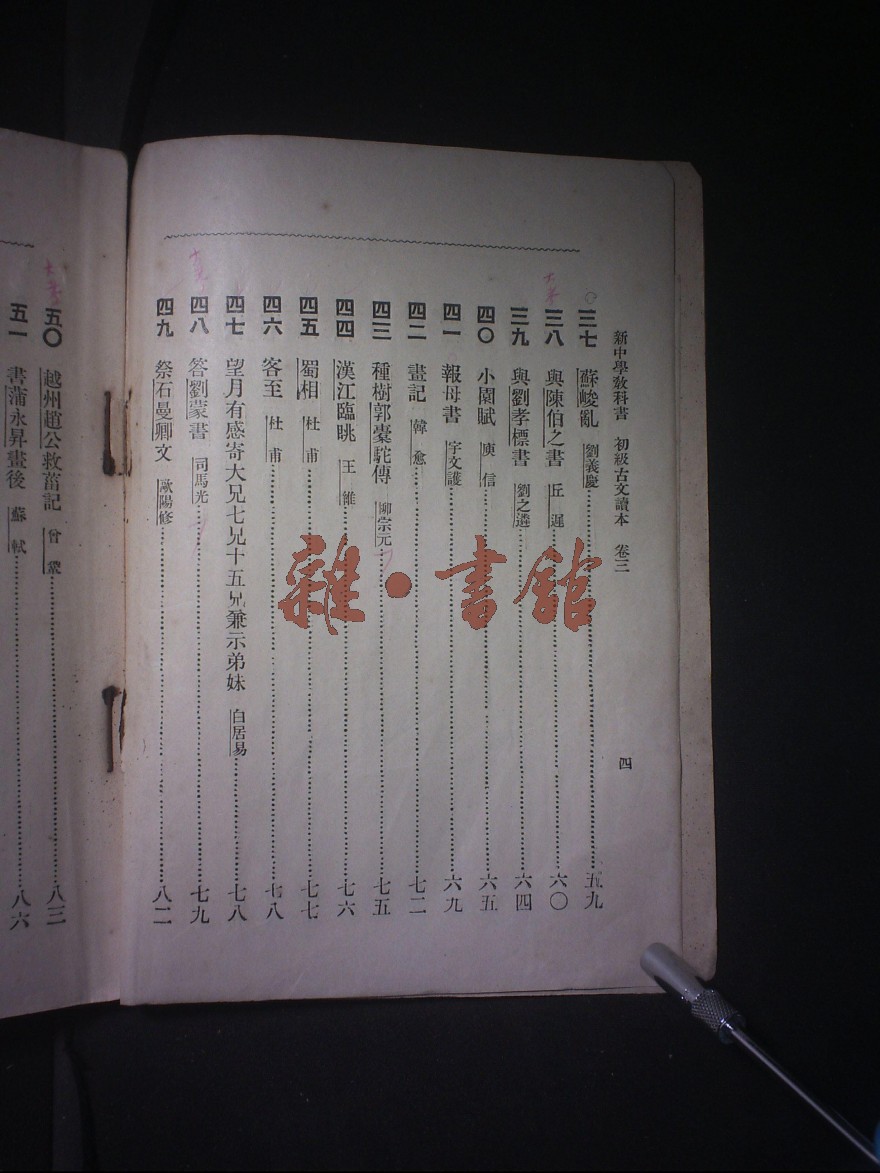 新中學敎科書 初級古文讀本 卷三 四
三七 蘇峻亂 劉義慶 五九
三八 與陳伯之書 丘遲 六〇
三九 與劉孝標書 劉之遴 六四
四〇 小園賦 庾信 六五
四一 報母書 宇文護 六九
四二 畫記 韓愈 七二
四三 種樹郭橐駝傳 柳宗元 七五
四四 漢江臨眺 王維 七六
四五 蜀相 杜甫 七七
四六 客至 杜甫 七八
四七 望月有感寄大兄七兄十五兄兼示弟妹 白居易 七八
四八 答劉蒙書 司馬光 七九
四九 祭石曼卿文 歐陽修 八二
五〇 越州趙公救菑記 曾鞏 八三
五一 書蒲永昇畫後 蘇軾 八六
雜·書館